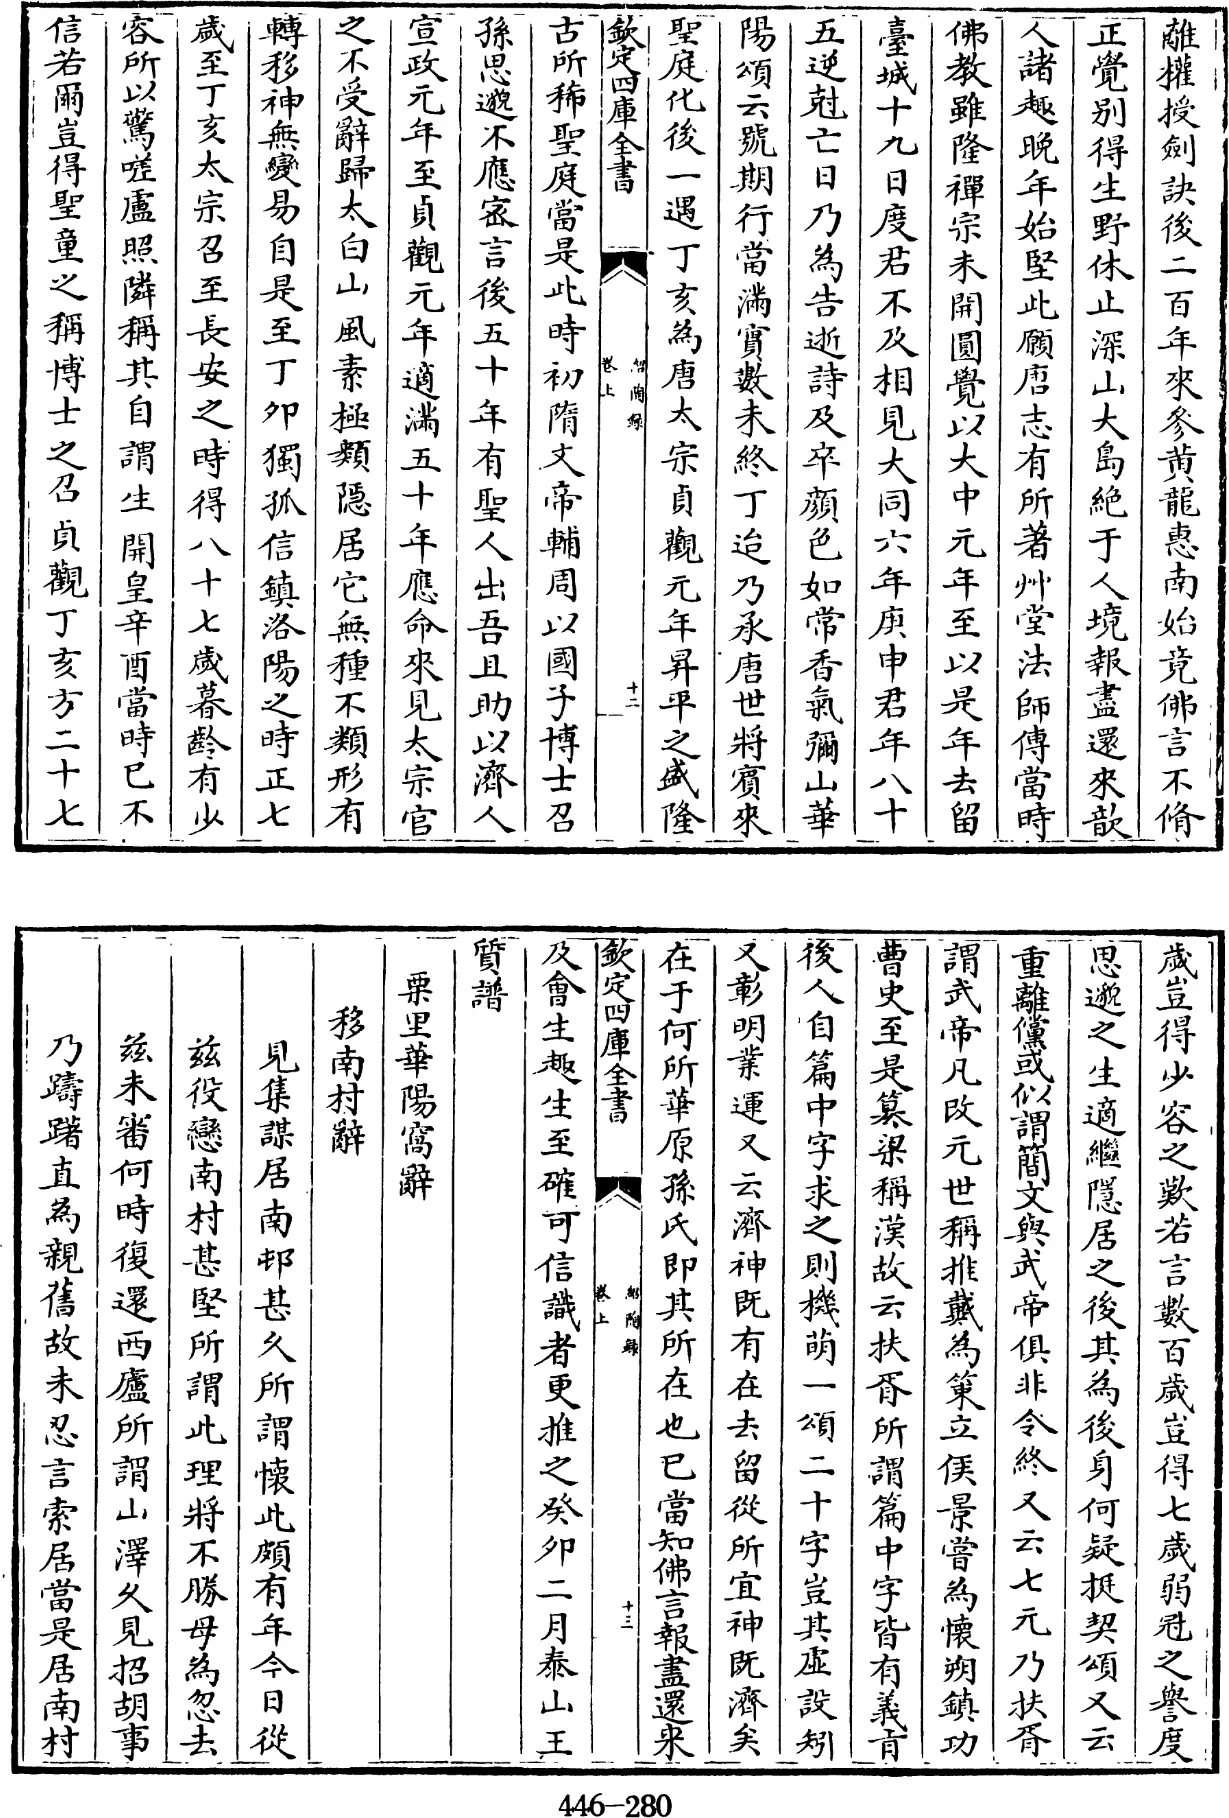 離權授劍訣後二百年來參黄龍惠南始竟佛言不脩
正覺别得生野休止深山大島絶于人境報盡還來散
人諸趣晩年始堅此願唐志有所著艸堂法師傳當時
佛教雖隆禪宗未開圓覺以大中元年至以是年去留
臺城十九日度君不及相見大同六年庚申君年八十
五逆尅亡日乃為告逝詩及卒顔色如常香氣彌山華
陽頌云號期行當滿實數未終丁迨乃承唐世將賓來
聖庭化後一遇丁亥為唐太宗貞觀元年昇平之盛隆
欽定四庫全書
紹陶録
卷上
十二
古所稀聖庭當是此時初隋文帝輔周以國子博士召
孫思邈不應宻言後五十年有聖人出吾且助以濟人
宣政元年至貞觀元年適滿五十年應命來見太宗官
之不受辭歸太白山風素極類隱居它無種不類形有
轉移神無變易自是至丁夘獨孤信鎮洛陽之時正七
歲至丁亥太宗召至長安之時得八十七歲暮齡有少
容所以驚嗟盧照隣稱其自謂生開皇辛酉當時已不
信若爾豈得聖童之稱博士之召貞觀丁亥方二十七
歲豈得少容之歎若言數百歲豈得七歲弱冠之譽度
思邈之生適繼隱居之後其為後身何疑挺契頌又云
重離儻或似謂簡文與武帝俱非令終又云七元乃扶胥
謂武帝凡改元世稱推戴為策立侯景嘗為懷朔鎮功
曹史至是簒梁稱漢故云扶胥所謂篇中字皆有義旨
後人自篇中字求之則機萌一頌二十字豈其虚設矧
又彰明業運又云濟神既有在去留從所宜神既濟矣
在于何所華原孫氏即其所在也已當知佛言報盡還來
欽定四庫全書
紹陶録
卷上
十三
及會生趣生至確可信識者更推之癸夘二月泰山王
質譜
栗里華陽窩辭
移南村辭
見集謀居南邨甚久所謂懷此頗有年今日從
兹役戀南村甚堅所謂此理將不勝毋為忽去
兹未審何時復還西廬所謂山澤久見招胡事
乃躊躇直為親舊故未忍言索居當是居南村
446-280